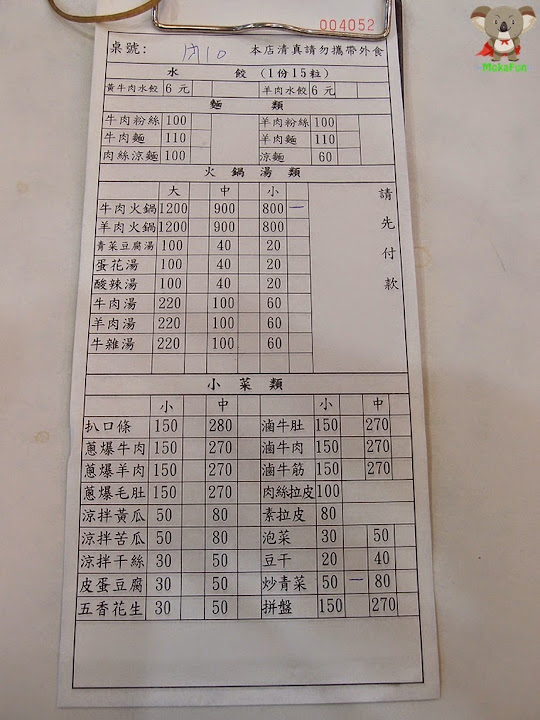 004052
MokaFun
桌號: 內10 本店清真請勿攜帶外食
水 餃 (1份15粒)
黃牛肉水餃 6元 羊肉水餃 6元
麵 類
牛肉粉絲 100 羊肉粉絲 100
牛肉麵 110 羊肉麵 110
肉絲涼麵 100 涼麵 60
火 鍋 湯 類
大 中 小
牛肉火鍋 1200 900 800 一
羊肉火鍋 1200 900 800
青菜豆腐湯 100 40 20
蛋花湯 100 40 20
酸辣湯 100 40 20
牛肉湯 220 100 60
羊肉湯 220 100 60
牛雜湯 220 100 60
請先付款
小 菜 類
小 中 小 中
扒口條 150 280 滷牛肚 150 270
蔥爆牛肉 150 270 滷牛肉 150 270
蔥爆羊肉 150 270 滷牛筋 150 270
蔥爆毛肚 150 270 肉絲拉皮 100
涼拌黃瓜 50 80 素拉皮 80
涼拌苦瓜 50 80 泡菜 30 50
涼拌干絲 30 50 豆干 20 40
皮蛋豆腐 30 50 炒青菜 50 一 80
五香花生 30 50 拼盤 150 270